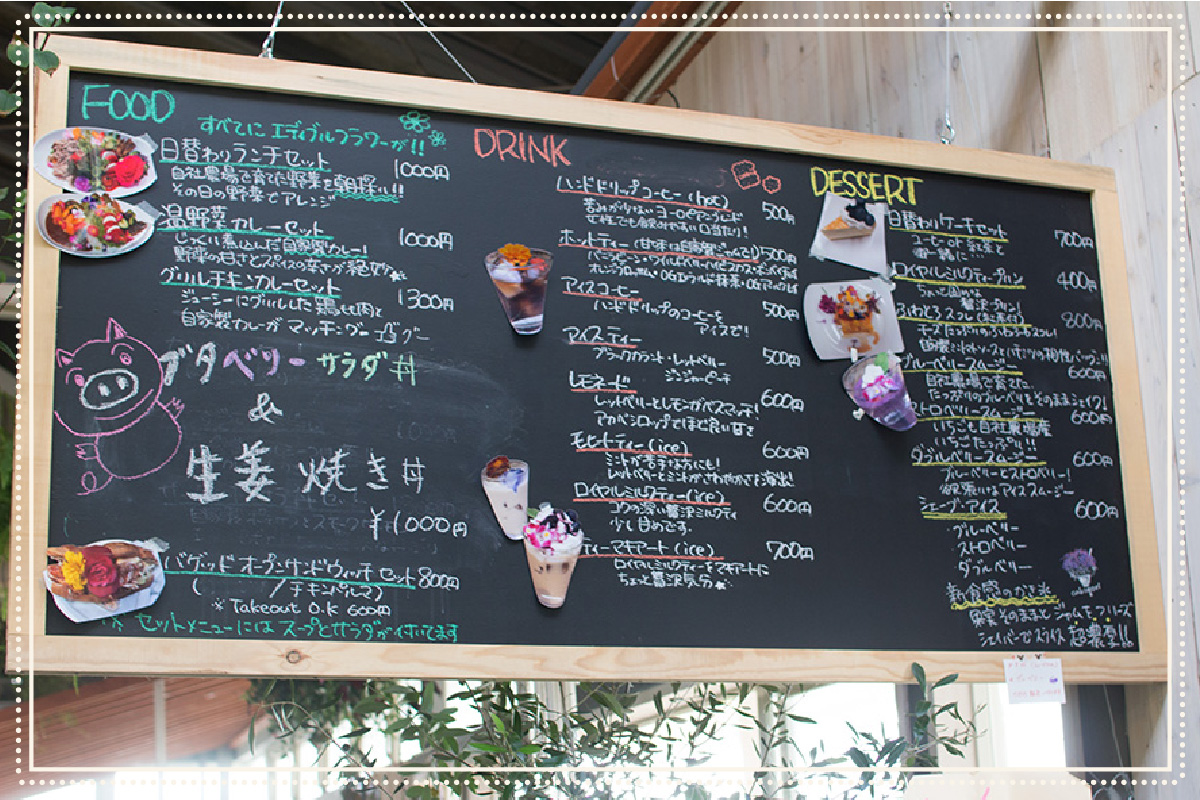 FOOD
すべてに エディブルフラワーが!!
日替わりランチセット 1000円
自社農場で育てた野菜を
その日の野菜でアレンジ
温野菜カレーセット 1000円
じっくり煮込んだ自家製カレー!
野菜の甘さとスパイスの辛さが
グリルチキンカレーセット 1300円
ジューシーにグリルした鶏もも肉と
自家製カレーが マッチ・グー
ブタベリーサラダ丼
&
生姜焼き丼
¥1000円
バゲッドオープンサンドウィッチセット 800円
※Takeout O.K 600円
セットメニューには スープとサラダが付いてます
DRINK
ハンドドリップコーヒー(hot) 500円
苦みが少ない ヨーロピアンブレンド
女性でも飲みやすい口当たり!
ホットティー 500円
アイスコーヒー 500円
ハンドドリップのコーヒーを
アイスで!
アイスティー 500円
ブラックカラント・レッドベリー
ジンジャーピーチ
レモネード 600円
レットベリーとレモンがベストマッチ!
アガベシロップでほど良い甘さ
モヒートティー(ice) 600円
ミントが苦手な方にも!
レットベリーとミントがさわやかさを演出!
ロイヤルミルクティー(ice) 600円
コクの深い贅沢ミルクティ
少し甘めです。
ティーマキアート(ice) 700円
ロイヤルミルクティーをマキアートに
ちょっと贅沢気分
DESSERT
日替わりケーキセット 700円
コーヒー or 紅茶と
一緒に…
ロイヤルミルクティープリン 400円
贅沢プリン!
800円
ブルーベリースムージー 600円
自社農場で育てた
たっぷりのブルーベリーをそのままシェイク!
ストロベリースムージー 600円
いちごも自社農場産
いちごたっぷり!!
ダブルベリースムージー 600円
ブルーベリーとストロベリー!
シェーブ・アイス 600円
ブルーベリー
ストロベリー
ダブルベリー
新食感のかき氷
果実そのままと ジャムをフリーズ
シェイバーでスライス 超濃厚!!